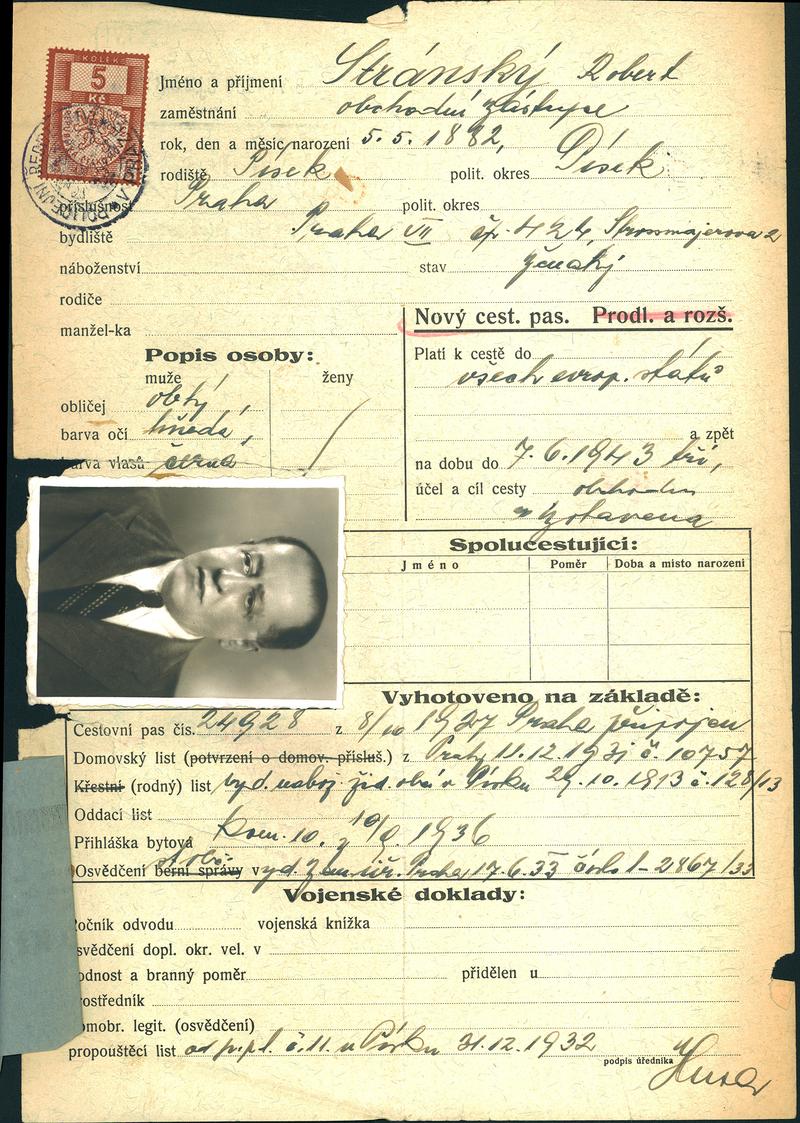 KOLEK
5
Kč
Jméno a příjmení Stránský Robert
zaměstnání obchodní zástupce
rok, den a měsíc narození 5. 5. 1882,
rodiště Písek polit. okres Písek
příslušnost Praha polit. okres
bydliště Praha VII čp. 424, Strossmajerova 2
náboženství stav ženatý
rodiče
manžel-ka
Nový cest. pas. Prodl. a rozš.
Popis osoby:
muže ženy
obličej
barva očí hnědá,
barva vlasů černá
Platí k cestě do
všech evrop. států
a zpět
na dobu do 7. 6. 1943
účel a cíl cesty obchodní
zotavená
Spolucestující:
Jméno Poměr Doba a místo narození
Vyhotoveno na základě:
Cestovní pas čís. 24928 z 8/10 1927 Praha připojen
Domovský list (potvrzení o domov. přísluš.) z Prahy 11. 12. 1931 č. 10757
Křestní (rodný) list vyd. nábož. žid. obcí v Písku 29. 10. 1913 č. 128/13
Oddací list
Přihláška bytová kom. 10. z 19/9. 1936
Osvědčení berní správy vyd. Zem. úř. Praha 17. 6. 33 číslo 1-2867/33
Vojenské doklady:
Ročník odvodu vojenská knížka
svědčení dopl. okr. vel. v
odnost a branný poměr přidělen u
rostředník
omobr. legit. (osvědčení)
propouštěcí list od p. pl. č. 11. v Písku 31. 12. 1932
podpis úředníka